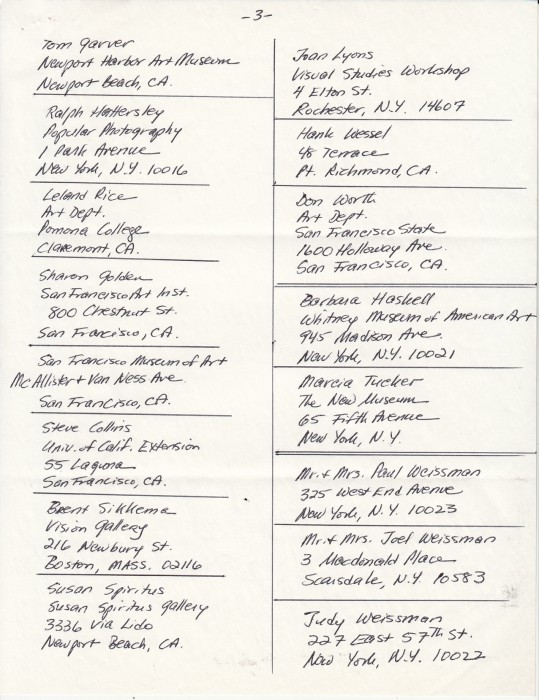 -3-
Tom Garver
Newport Harbor Art Museum
Newport Beach, CA.
Ralph Hattersley
Popular Photography
1 Park Avenue
New York, N.Y. 10016
Leland Rice
Art Dept.
Pomona College
Claremont, CA.
Sharon Golden
San Francisco Art Inst.
800 Chestnut St.
San Francisco, CA.
San Francisco Museum of Art
McAllister + Van Ness Ave.
San Francisco, CA.
Steve Collins
Univ. of Calif. Extension
55 Laguna
San Francisco, CA.
Brent Sikkema
Vision Gallery
216 Newbury St.
Boston, MASS. 02116
Susan Spiritus
Susan Spiritus Gallery
3336 Via Lido
Newport Beach, CA.
Joan Lyons
Visual Studies Workshop
4 Elton St.
Rochester, N.Y. 14607
Hank Wessel
48 Terrace
Pt. Richmond, CA.
Don Worth
Art Dept.
San Francisco State
1600 Holloway Ave.
San Francisco, CA.
Barbara Haskell
Whitney Museum of American Art
945 Madison Ave.
New York, N.Y. 10021
Marcia Tucker
The New Museum
65 Fifth Avenue
New York, N.Y.
Mr. & Mrs. Paul Weissman
325 West End Avenue
New York, N.Y. 10023
Mr. & Mrs. Joel Weissman
3 Macdonald Place
Scarsdale, N.Y. 10583
Judy Weissman
227 East 57th St.
New York, N.Y. 10022